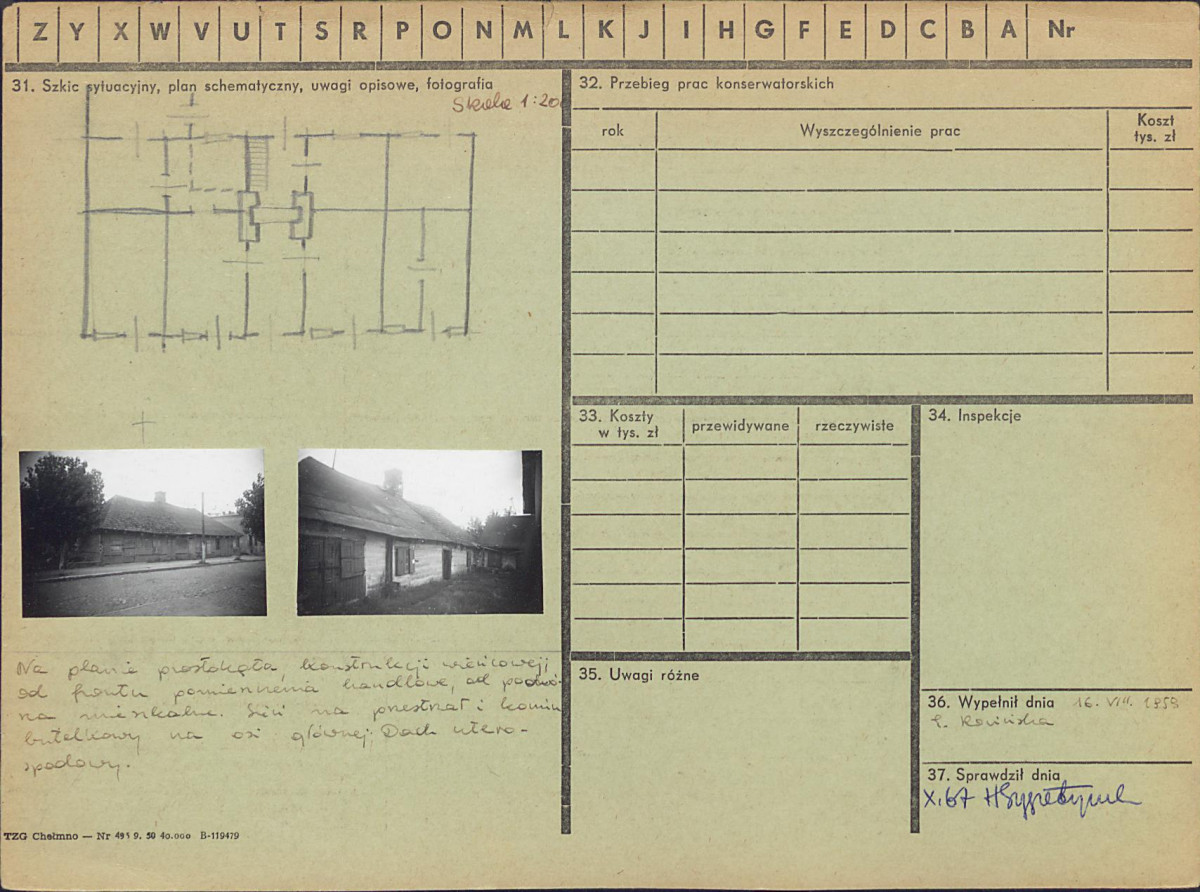 Z Y X W V U T S R P O N M L K J I H G F E D C B A Nr
31. Szkic sytuacyjny, plan schematyczny, uwagi opisowe, fotografia
Skala 1:200
Na planie prostokąta, konstrukcji wieńcowej,
od frontu pomieszczenia handlowe, od podwó-
rza mieszkalne. Sień na przestrzał i komin
butelkowy na osi głównej. Dach cztero-
spadowy.
TZG Chełmno — Nr 493 9. 59 40.000 B-119479
32. Przebieg prac konserwatorskich
rok Wyszczególnienie prac Koszt
tys. zł
33. Koszty
w tys. zł
przewidywane rzeczywiste
34. Inspekcje
35. Uwagi różne
36. Wypełnił dnia 16. VIII. 1959
37. Sprawdził dnia
X.67